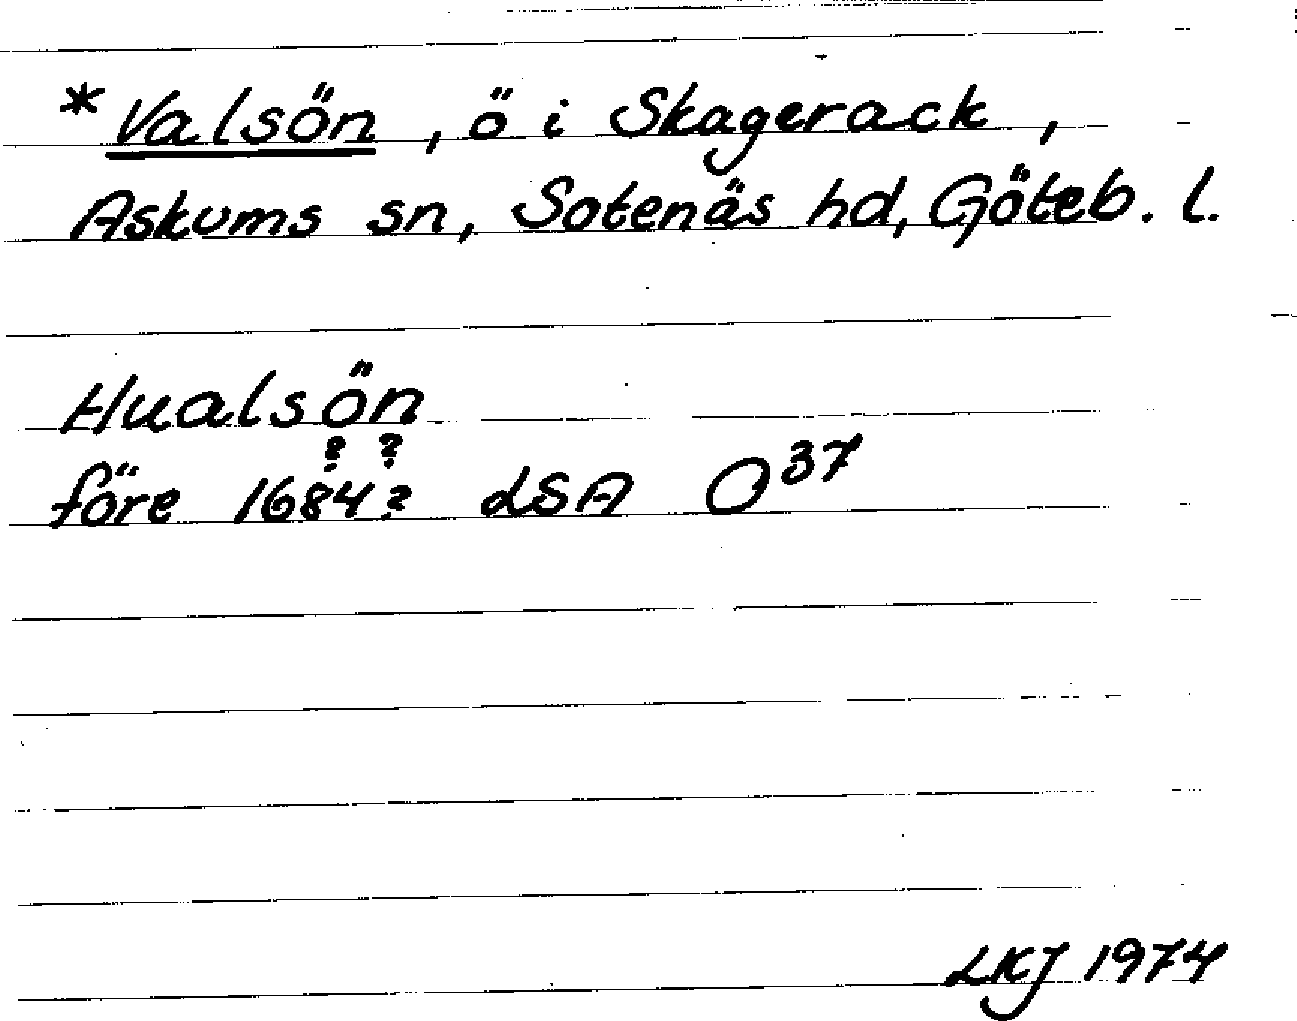 * Valsön, ö i Skagerack,
Askums sn, Sotenäs hd, Göteb. l.
Hualsön
? ?
före 1684? LSA O 37
LKJ 1974